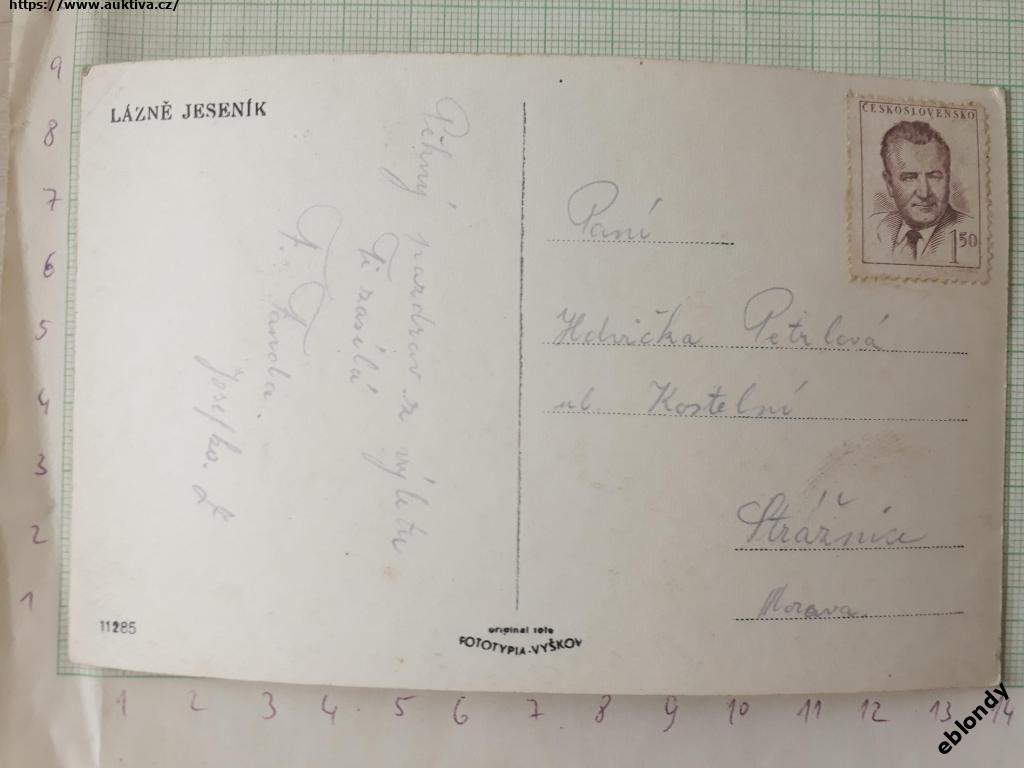 https://www.auktiva.cz/
LÁZNĚ JESENÍK
ČESKOSLOVENSKO
1 50
Pěkný pozdrav z výletu
Ti zasílá
F.
Josefka.
Paní
Hdvička Petrlová
ul. Kostelní
Strážnice
Morava.
11285
original foto
FOTOTYPIA-VYŠKOV
9
8
7
6
5
4
3
2
1
1 2 3 4 5 6 7 8 9 10 11 12 13 14
eblondy